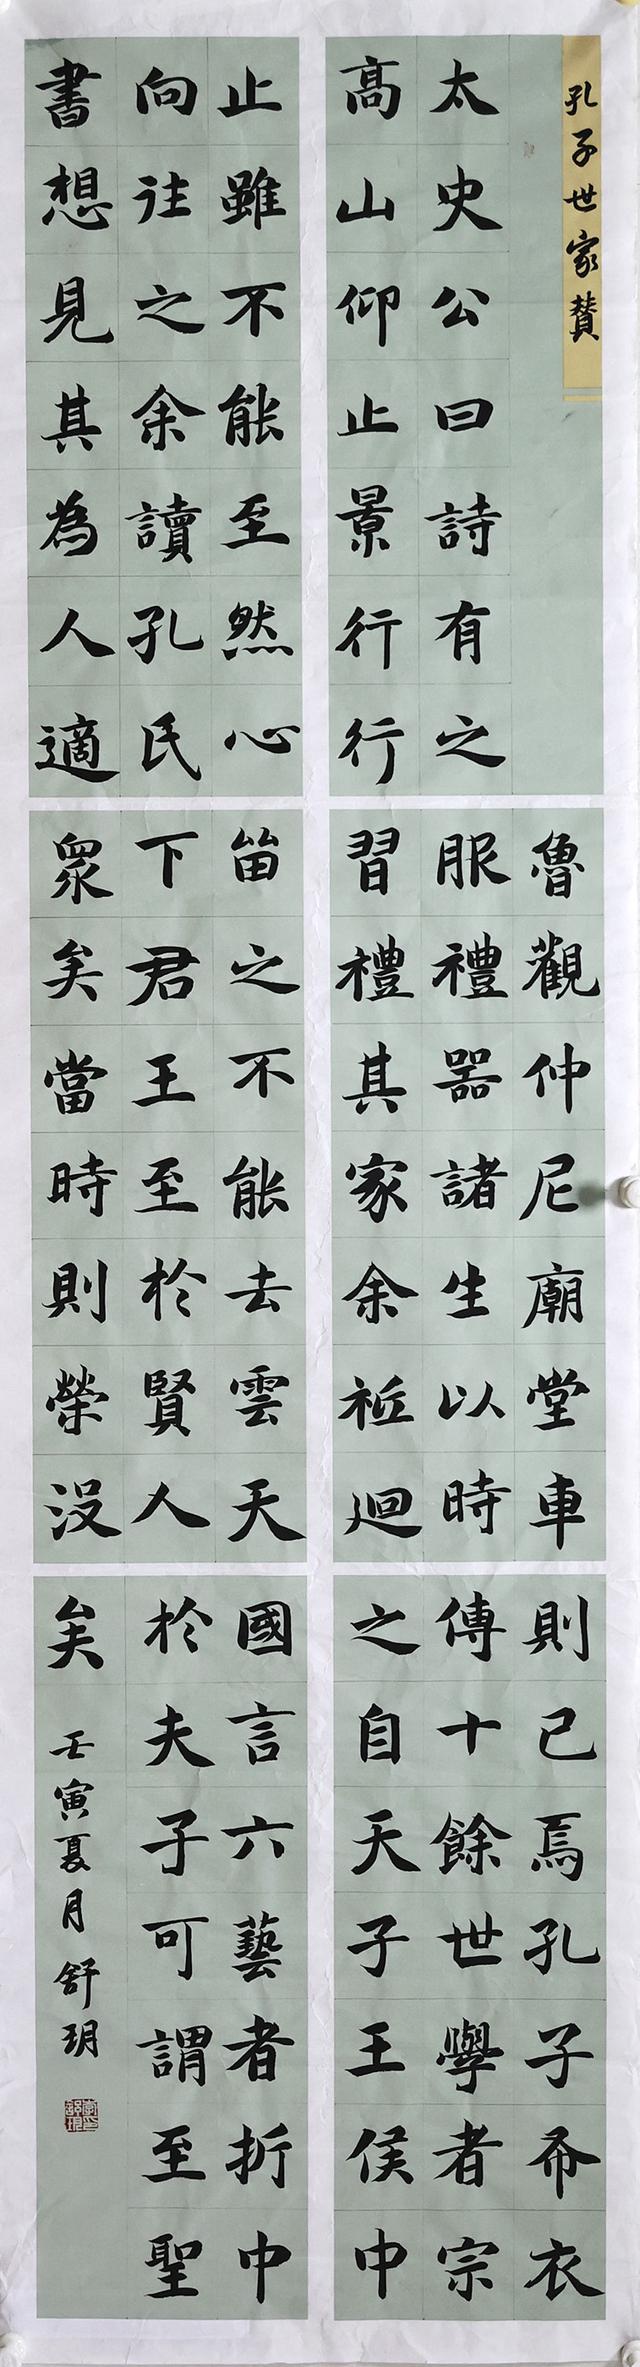 孔子世家贊
太史公曰詩有之
高山仰止景行行
止雖不能至然心
向往之余讀孔氏
書想見其為人適
魯觀仲尼廟堂車
服禮器諸生以時
習禮其家余祗迴
留之不能去雲天
下君王至於賢人
眾矣當時則榮沒
則已焉孔子布衣
傳十餘世學者宗
之自天子王侯中
國言六藝者折中
於夫子可謂至聖
矣
壬寅夏月舒玥